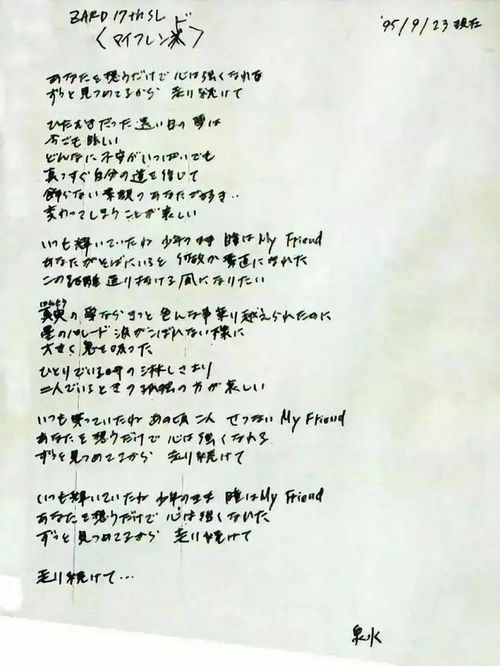 ZARD 17th SL
ド
〈マイフレンド〉
'95/9/23 現在
あなたを想うだけで 心は強くなれる
ずっと見つめてるから 走り続けて
ひたむきだった遠い日の夢は
今でも眩しい
どんなに不安がいっぱいでも
真っすぐ自分の道を信じて
飾らない素顔のあなたが好き‥
変わってしまうことが哀しい
いつも輝いていたね 少年のまま 瞳はMy Friend
あなたがそばにいると 何故か素直になれた
この距離通り抜ける風になりたい
真実の夢ならきっと色んな事乗り越えられたのに
星のパレード 涙がこぼれない様に
大きく息を吸った
ひとりでいる時の淋しさより
二人でいるときの孤独の方が哀しい
いつも笑っていたね あの頃二人 せつない My Friend
あなたを想うだけで 心は強くなれる
ずっと見つめてるから 走り続けて
いつも輝いていたね 少年のまま 瞳はMy Friend
あなたを想うだけで 心は強くなれた
ずっと見つめてるから 走り続けて
走り続けて…
泉水